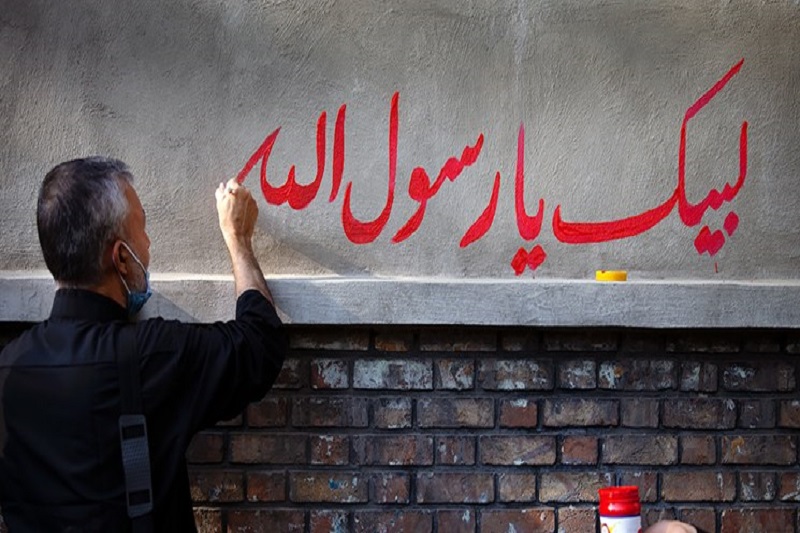 لبیک یا رسول الله